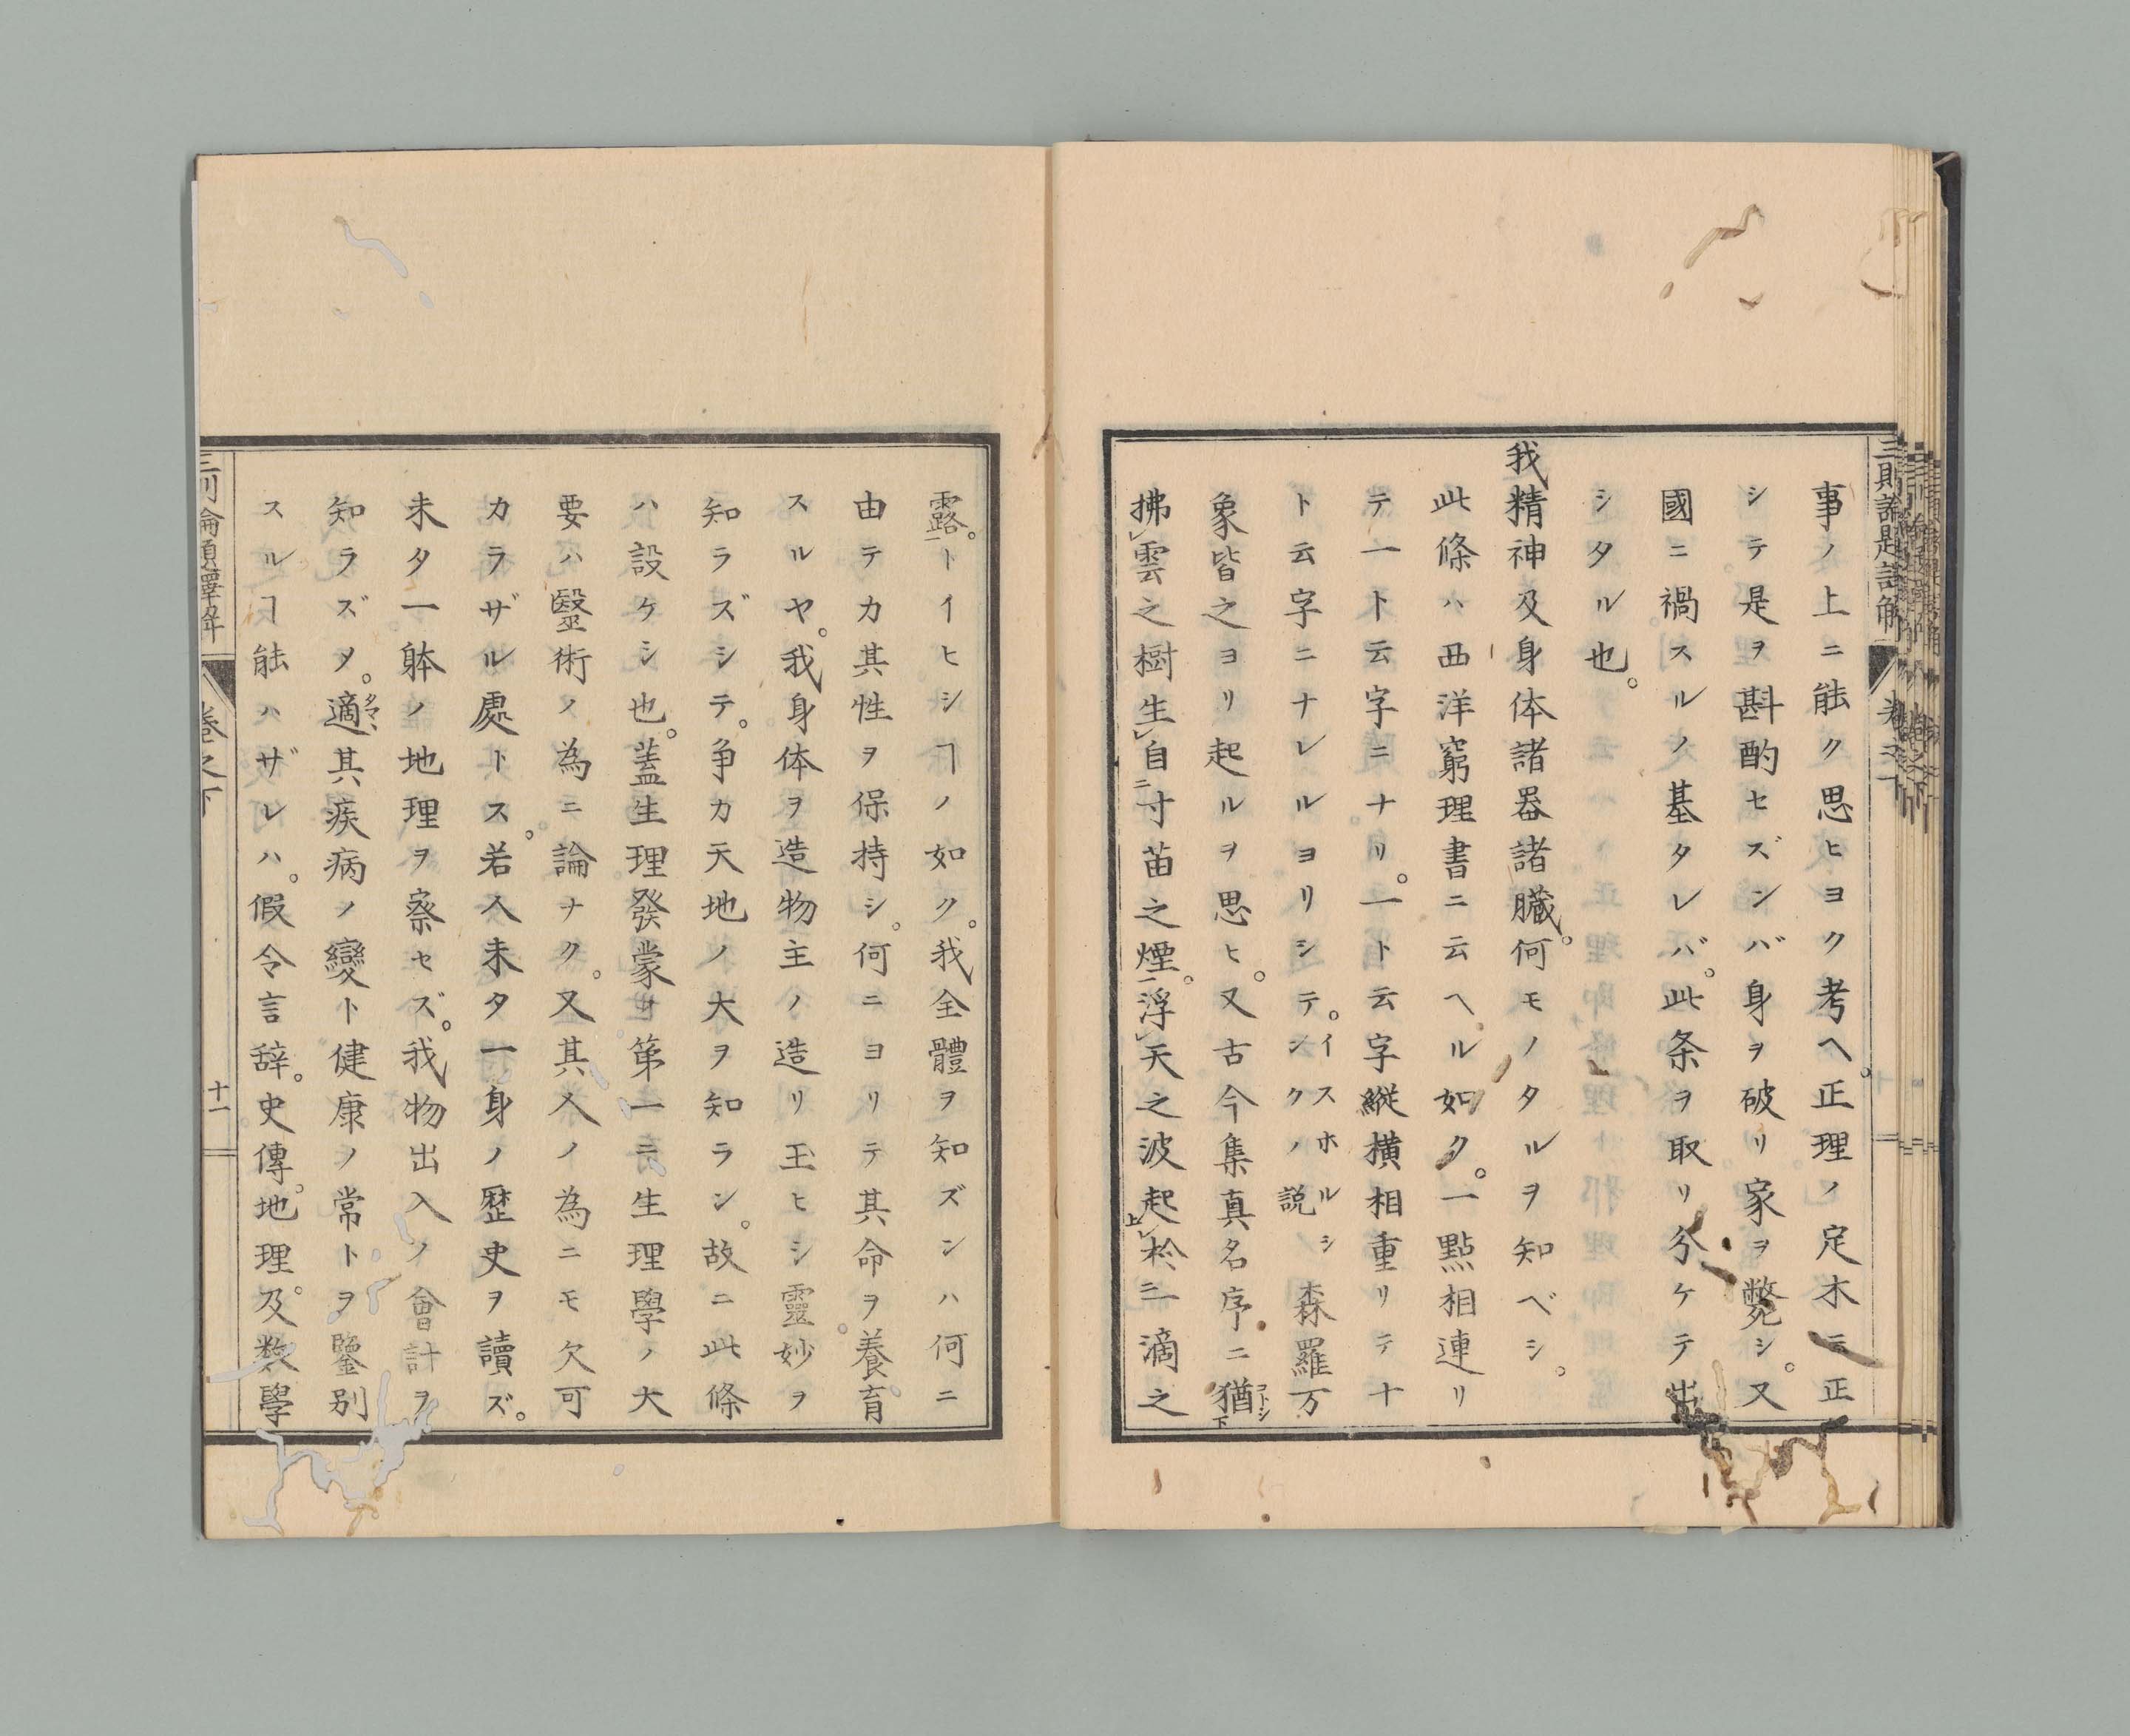 事ノ上ニ能ク思ヒヨク考ヘ。正理ノ定木ニ正
シテ是ヲ斟酌セズンバ身ヲ破リ家ヲ斃シ。又
國ニ禍スルノ基タレバ。此条ヲ取リ分ケテ出
シタル也。
我精神及身体諸器諸臓。何モノタルヲ知ベシ。
此條ハ西洋窮理書ニ云ヘル如ク。一點相連リ
テ一ト云字ニナリ。一ト云字縦横相重リテ十
ト云字ニナレルヨリシテ。イスホルシンクノ説 森羅万
象皆之ヨリ起ルヲ思ヒ。又古今集真名序ニ猶コトシ下
拂レ雲之樹生レ自二寸苗之煙一。浮レ天之波起上レ於三滴之
露。一トイヒシヿノ如ク。我全體ヲ知ズンハ何ニ
由テカ其性ヲ保持シ。何ニヨリテ其命ヲ養育
スルヤ。我身体ヲ造物主ノ造リ玉ヒシ靈妙ヲ
知ラズシテ。争カ天地ノ大ヲ知ラン。故ニ此條
ハ設ケシ也。蓋生理發蒙サ第一ニ生理學ノ大
要ハ醫術ノ為ニ論ナク。又其人ノ為ニモ欠可
カラザル處トス。若人未タ一身ノ歴史ヲ讀ズ。
未タ一躰ノ地理ヲ察セズ。我物出入ノ會計ヲ
知ラズメ。適タマ〻其疾病ノ變ト健康ノ常トヲ鑒別
スルヿ能ハザレハ。假令言辞。史傳。地理。及数學
巻之下
十一